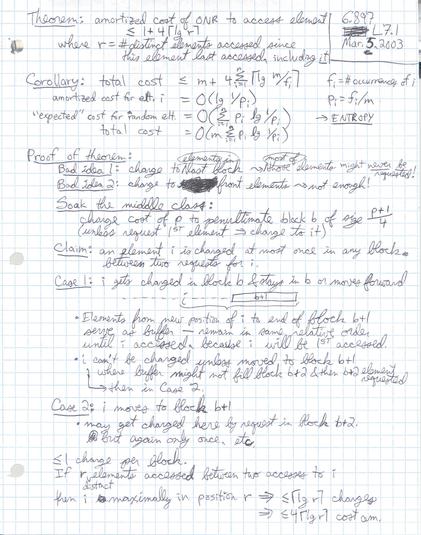 Theorem: amortized cost of ONR to access element
≤ 1+4⌈lg r⌉
where r = # distinct elements accessed since
this element last accessed, including it
6.897
L7.1
Mar. 5. 2003
Corollary: total cost ≤ m + 4 Σ⌈lg m/fᵢ⌉ fᵢ = # occurrences of i
amortized cost for elt. i = O(lg 1/pᵢ) pᵢ = fᵢ/m
"expected" cost for random elt. = O(Σ pᵢ lg 1/pᵢ) → ENTROPY
total cost = O(m Σ pᵢ lg 1/pᵢ)
Proof of theorem: elements in most of
Bad idea 1: charge to last block → those elements might never be requested!
Bad idea 2: charge to front elements → not enough!
Soak the middle class:
charge cost of p to penultimate block b of size p+1/4
(unless request 1ST element ⇒ charge to it)
Claim: an element i is charged at most once in any block
between two requests for i.
Case 1: i gets charged in block b & stays in b or moves forward
i b+1
• Elements from new position of i to end of block b+1
serve as buffer — remain in same relative order
until i accessed, because i will be 1ST accessed.
• i can't be charged unless moved to block b+1
where buffer might not fill block b+2 & then b+2 element requested
→ then in Case 2.
Case 2: i moves to block b+1
• may get charged here by request in block b+2.
but again only once, etc
≤1 charge per block.
If r distinct elements accessed between two accesses to i
then i maximally in position r ⇒ ≤⌈lg r⌉ charges
⇒ ≤4⌈lg r⌉ cost am.